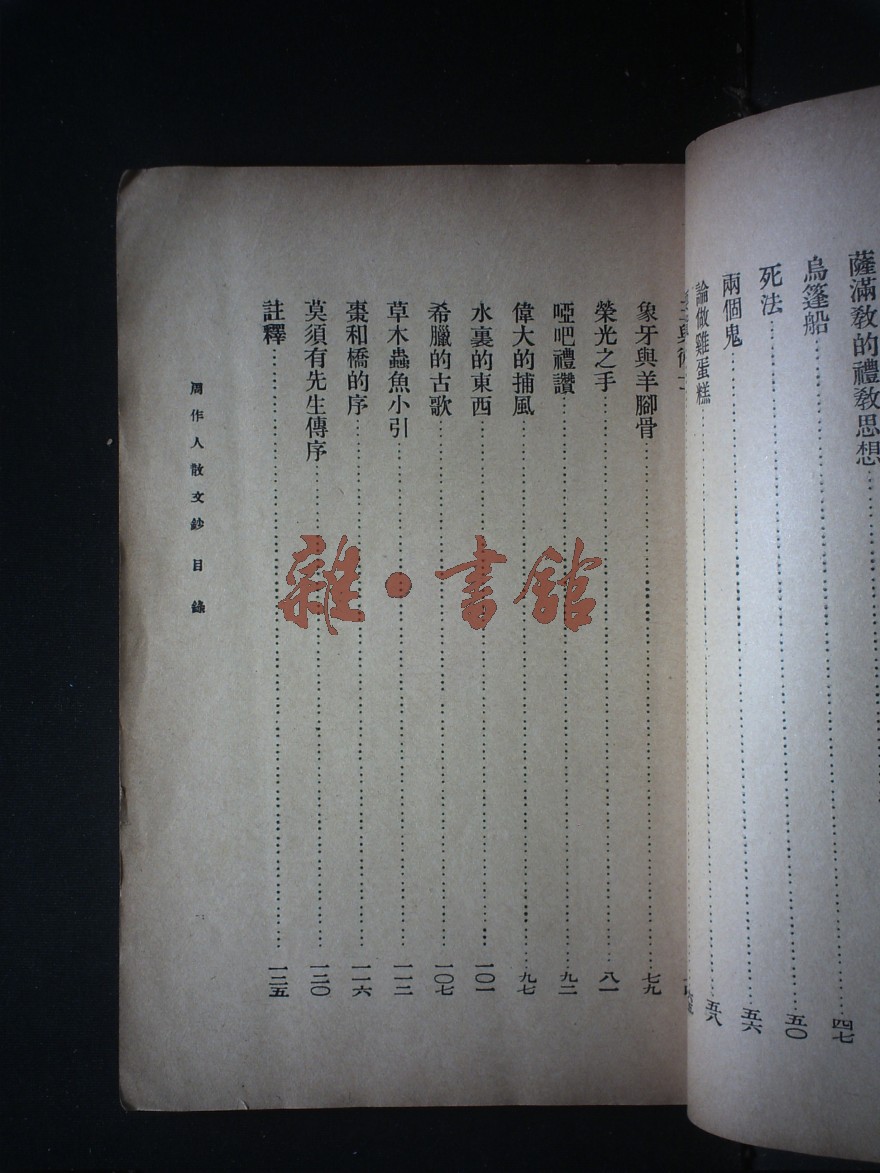 薩滿教的禮教思想……四七
烏篷船……五〇
死法……五六
兩個鬼……五八
論做雞蛋糕
象牙與羊腳骨……七九
榮光之手……八一
啞吧禮讚……九二
偉大的捕風……九七
水裏的東西……一〇一
希臘的古歌……一〇七
草木蟲魚小引……一一二
棗和橋的序……一一六
莫須有先生傳序……一二〇
註釋……一二五
周作人散文鈔 目錄
雜·書館